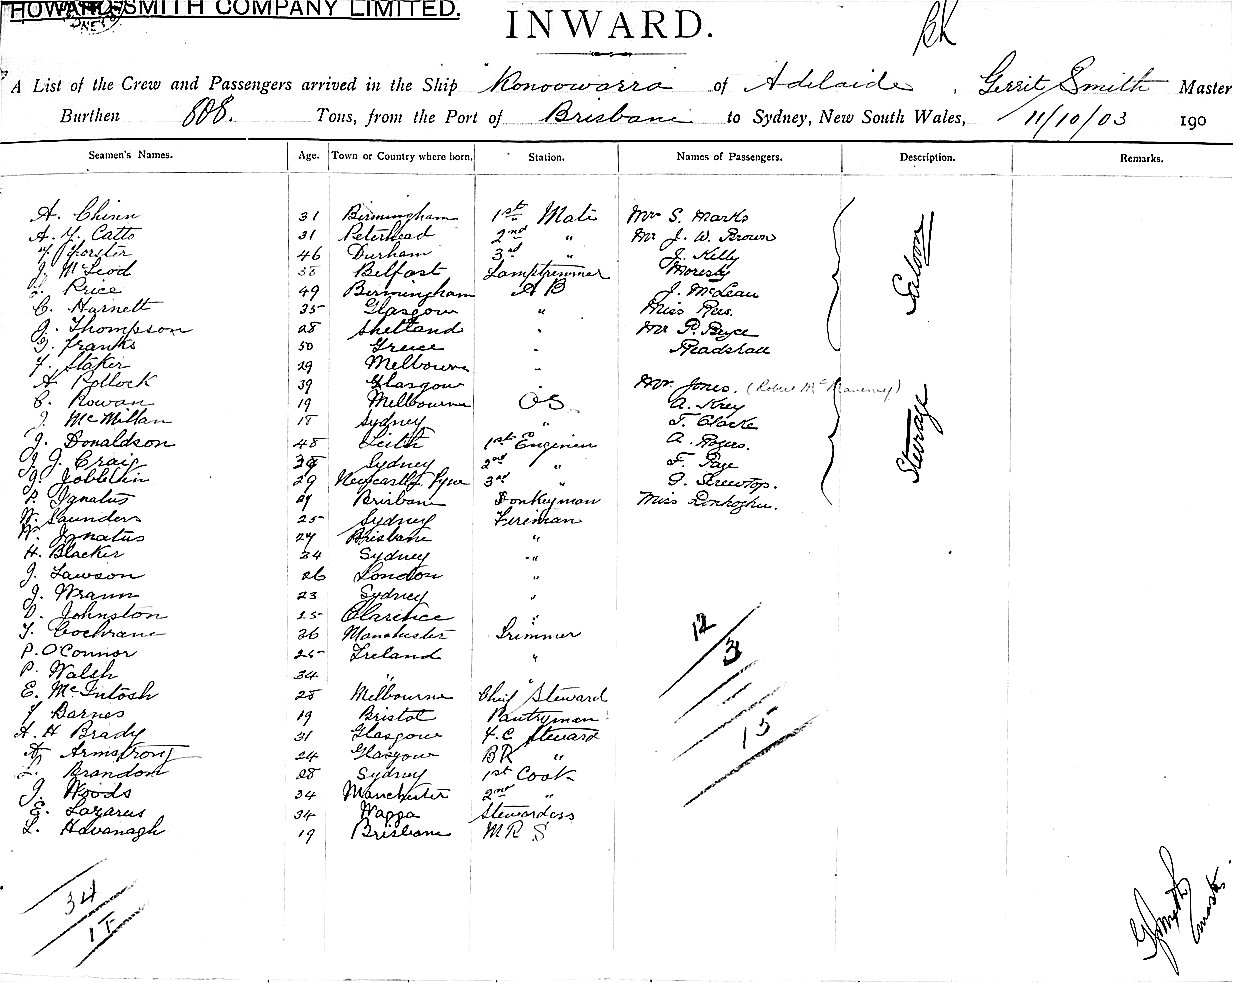 HOWARD SMITH COMPANY LIMITED.
INWARD.
A List of the Crew and Passengers arrived in the Ship Konoowarra of Adelaide, Gerrit Smith Master
Burthen 808. Tons, from the Port of Brisbane to Sydney, New South Wales, 11/10/03 190
Seamen's Names. Age. Town or Country where born. Station. Names of Passengers. Description. Remarks.
A. Chinn 31 Birmingham 1st Mate Mr S. Marks
A. Y. Catto 31 Peterhead 2nd " Mr J. W. Brown
Forster 46 Durham 3rd " J. Kelly
J. McLeod 38 Belfast Lamptrimmer Moresby
Price 49 Birmingham AB J. McLean
C. Harnett 35 Glasgow " Miss
J. Thompson 28 Shetland " Mr P. Bryce
Franks 50 Greece " Readshaw
Staker 29 Melbourne "
A Pollock 39 Glasgow " Mr Jones. (Robert
C. Rowan 19 Melbourne OS A. Krey
J. McMillan 18 Sydney " T. Clarke
J. Donaldson 48 Leith 1st Engineer A.
J. Craig Sydney 2nd " F. Page
J. Joblin 29 Newcastle Tyne 3rd "
P. Ignatus 27 Brisbane Donkeyman Miss
W. Saunders 25 Sydney Fireman
W. Ignatus 27 Brisbane "
H. Blacker 34 Sydney "
J. Lawson 26 London "
J. Wrann 23 Sydney "
D. Johnston 25 Clarence "
T. Cochrane 26 Manchester Trimmer
P. O'Connor 25 Ireland "
P. Walsh 34 " "
E. McIntosh 28 Melbourne Chief Steward
Barnes 19 Bristol Pantryman
A. H Brady 31 Glasgow F.C Steward
A. Armstrong 24 Glasgow BR "
L. Brandon 28 Sydney 1st Cook
J. Woods 34 Manchester 2nd "
E. Lazarus 34 Wagga Stewardess
L. Kavanagh 19 Brisbane M R S
Saloon
Steerage
12
3
15
34
15
G Smith
Master